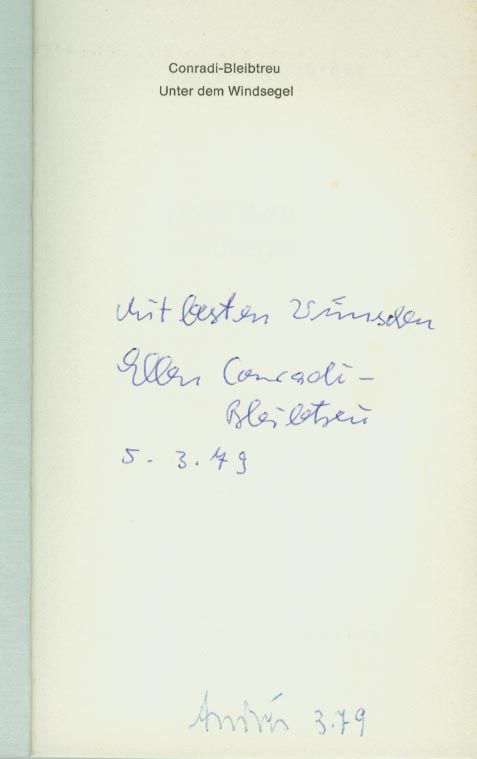 Conradi-Bleibtreu
Unter dem Windsegel
Mit besten Wünschen
Ellen Conradi-
Bleibtreu
5. 3. 79
3.79